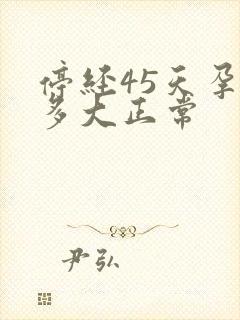 停经45天孕
多大正常
尹弘